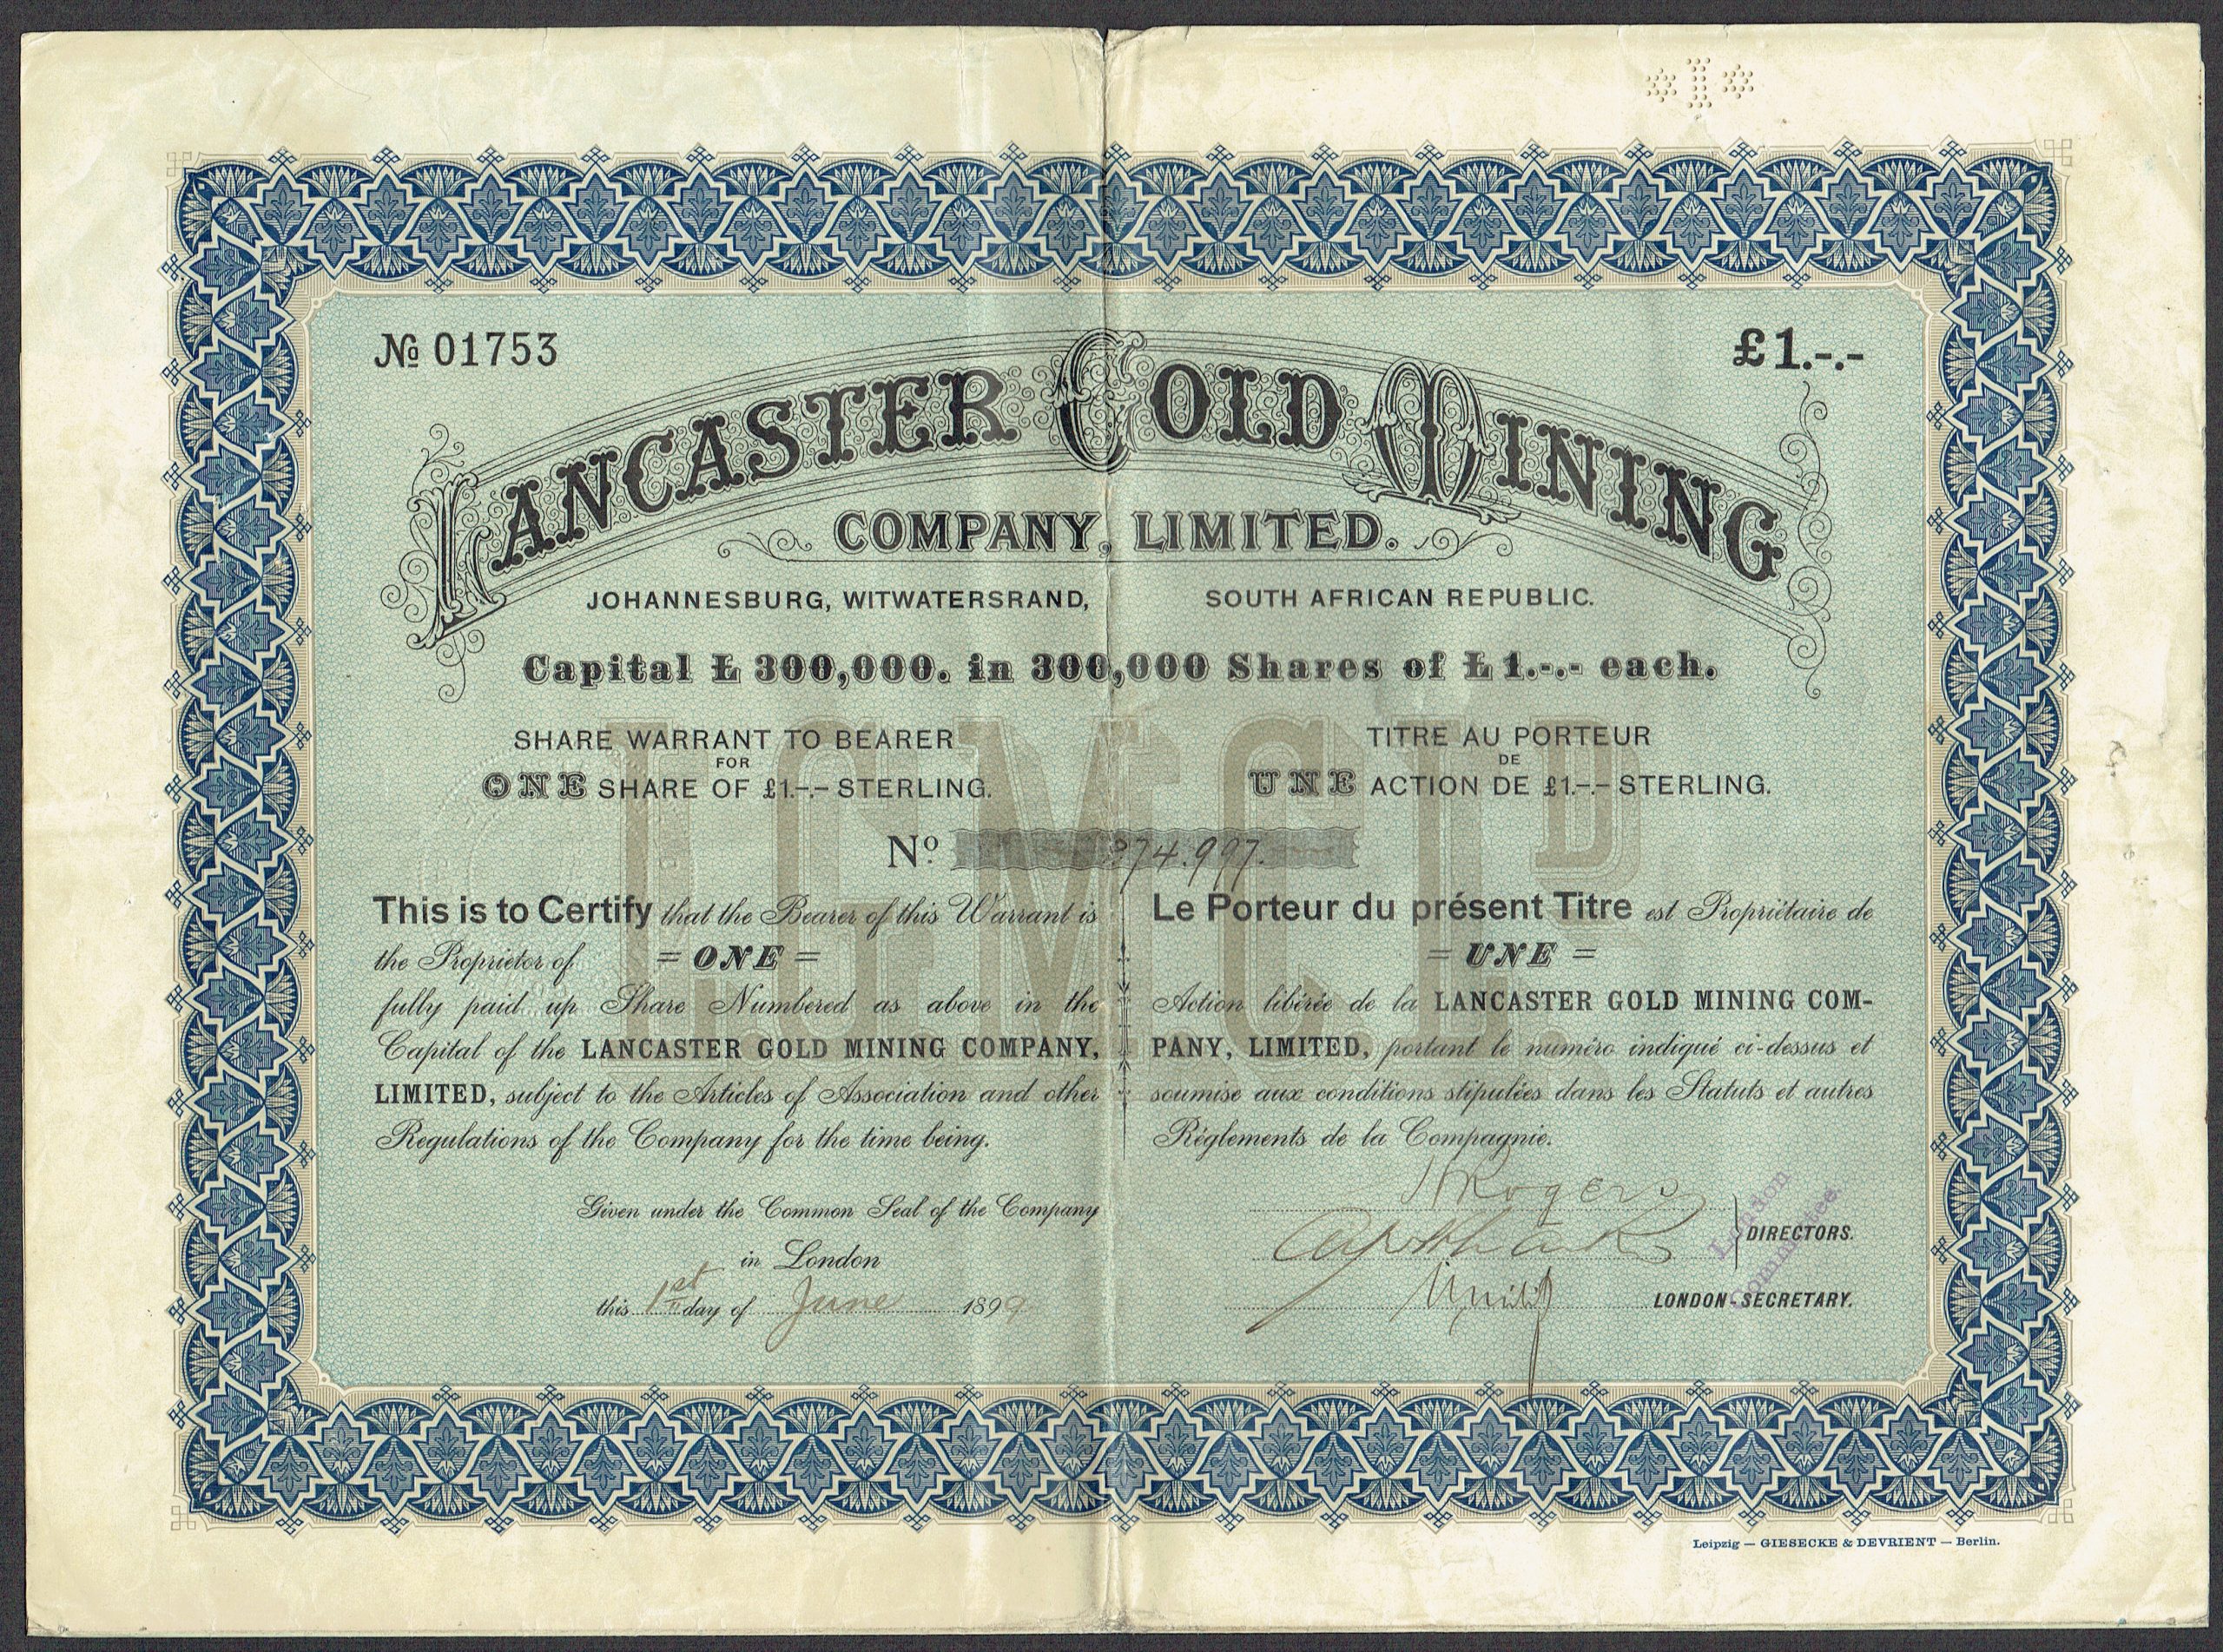 № 01753
£1.-.-
LANCASTER GOLD MINING
COMPANY, LIMITED.
JOHANNESBURG, WITWATERSRAND, SOUTH AFRICAN REPUBLIC.
Capital £ 300,000. in 300,000 Shares of £ 1.-.- each.
SHARE WARRANT TO BEARER
FOR
ONE SHARE OF £1.-.- STERLING.
TITRE AU PORTEUR
DE
UNE ACTION DE £1.-.- STERLING.
L.G.M.C.LD.
Nº 274.997.
This is to Certify that the Bearer of this Warrant is
the Proprietor of = ONE =
fully paid up Share Numbered as above in the
Capital of the LANCASTER GOLD MINING COMPANY,
LIMITED, subject to the Articles of Association and other
Regulations of the Company for the time being.
Le Porteur du présent Titre est Propriétaire de
= UNE =
Action libérée de la LANCASTER GOLD MINING COM-
PANY, LIMITED, portant le numéro indiqué ci-dessus et
soumise aux conditions stipulées dans les Statuts et autres
Règlements de la Compagnie.
Given under the Common Seal of the Company
in London
this 1st day of June 1899
Rogers
DIRECTORS.
LONDON-SECRETARY.
London
Committee.
Leipzig — GIESECKE & DEVRIENT — Berlin.